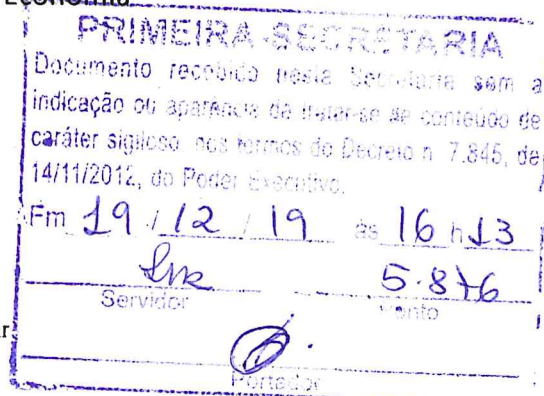 Economia
PRIMEIRA-SECRETARIA
Documento recebido nesta Secretaria sem a
indicação ou aparência de tratar-se de conteúdo de
caráter sigiloso, nos termos do Decreto n. 7.845, de
14/11/2012, do Poder Executivo.
Em 19 / 12 / 19 às 16 h 13
5.876
Servidor Ponto
Portador